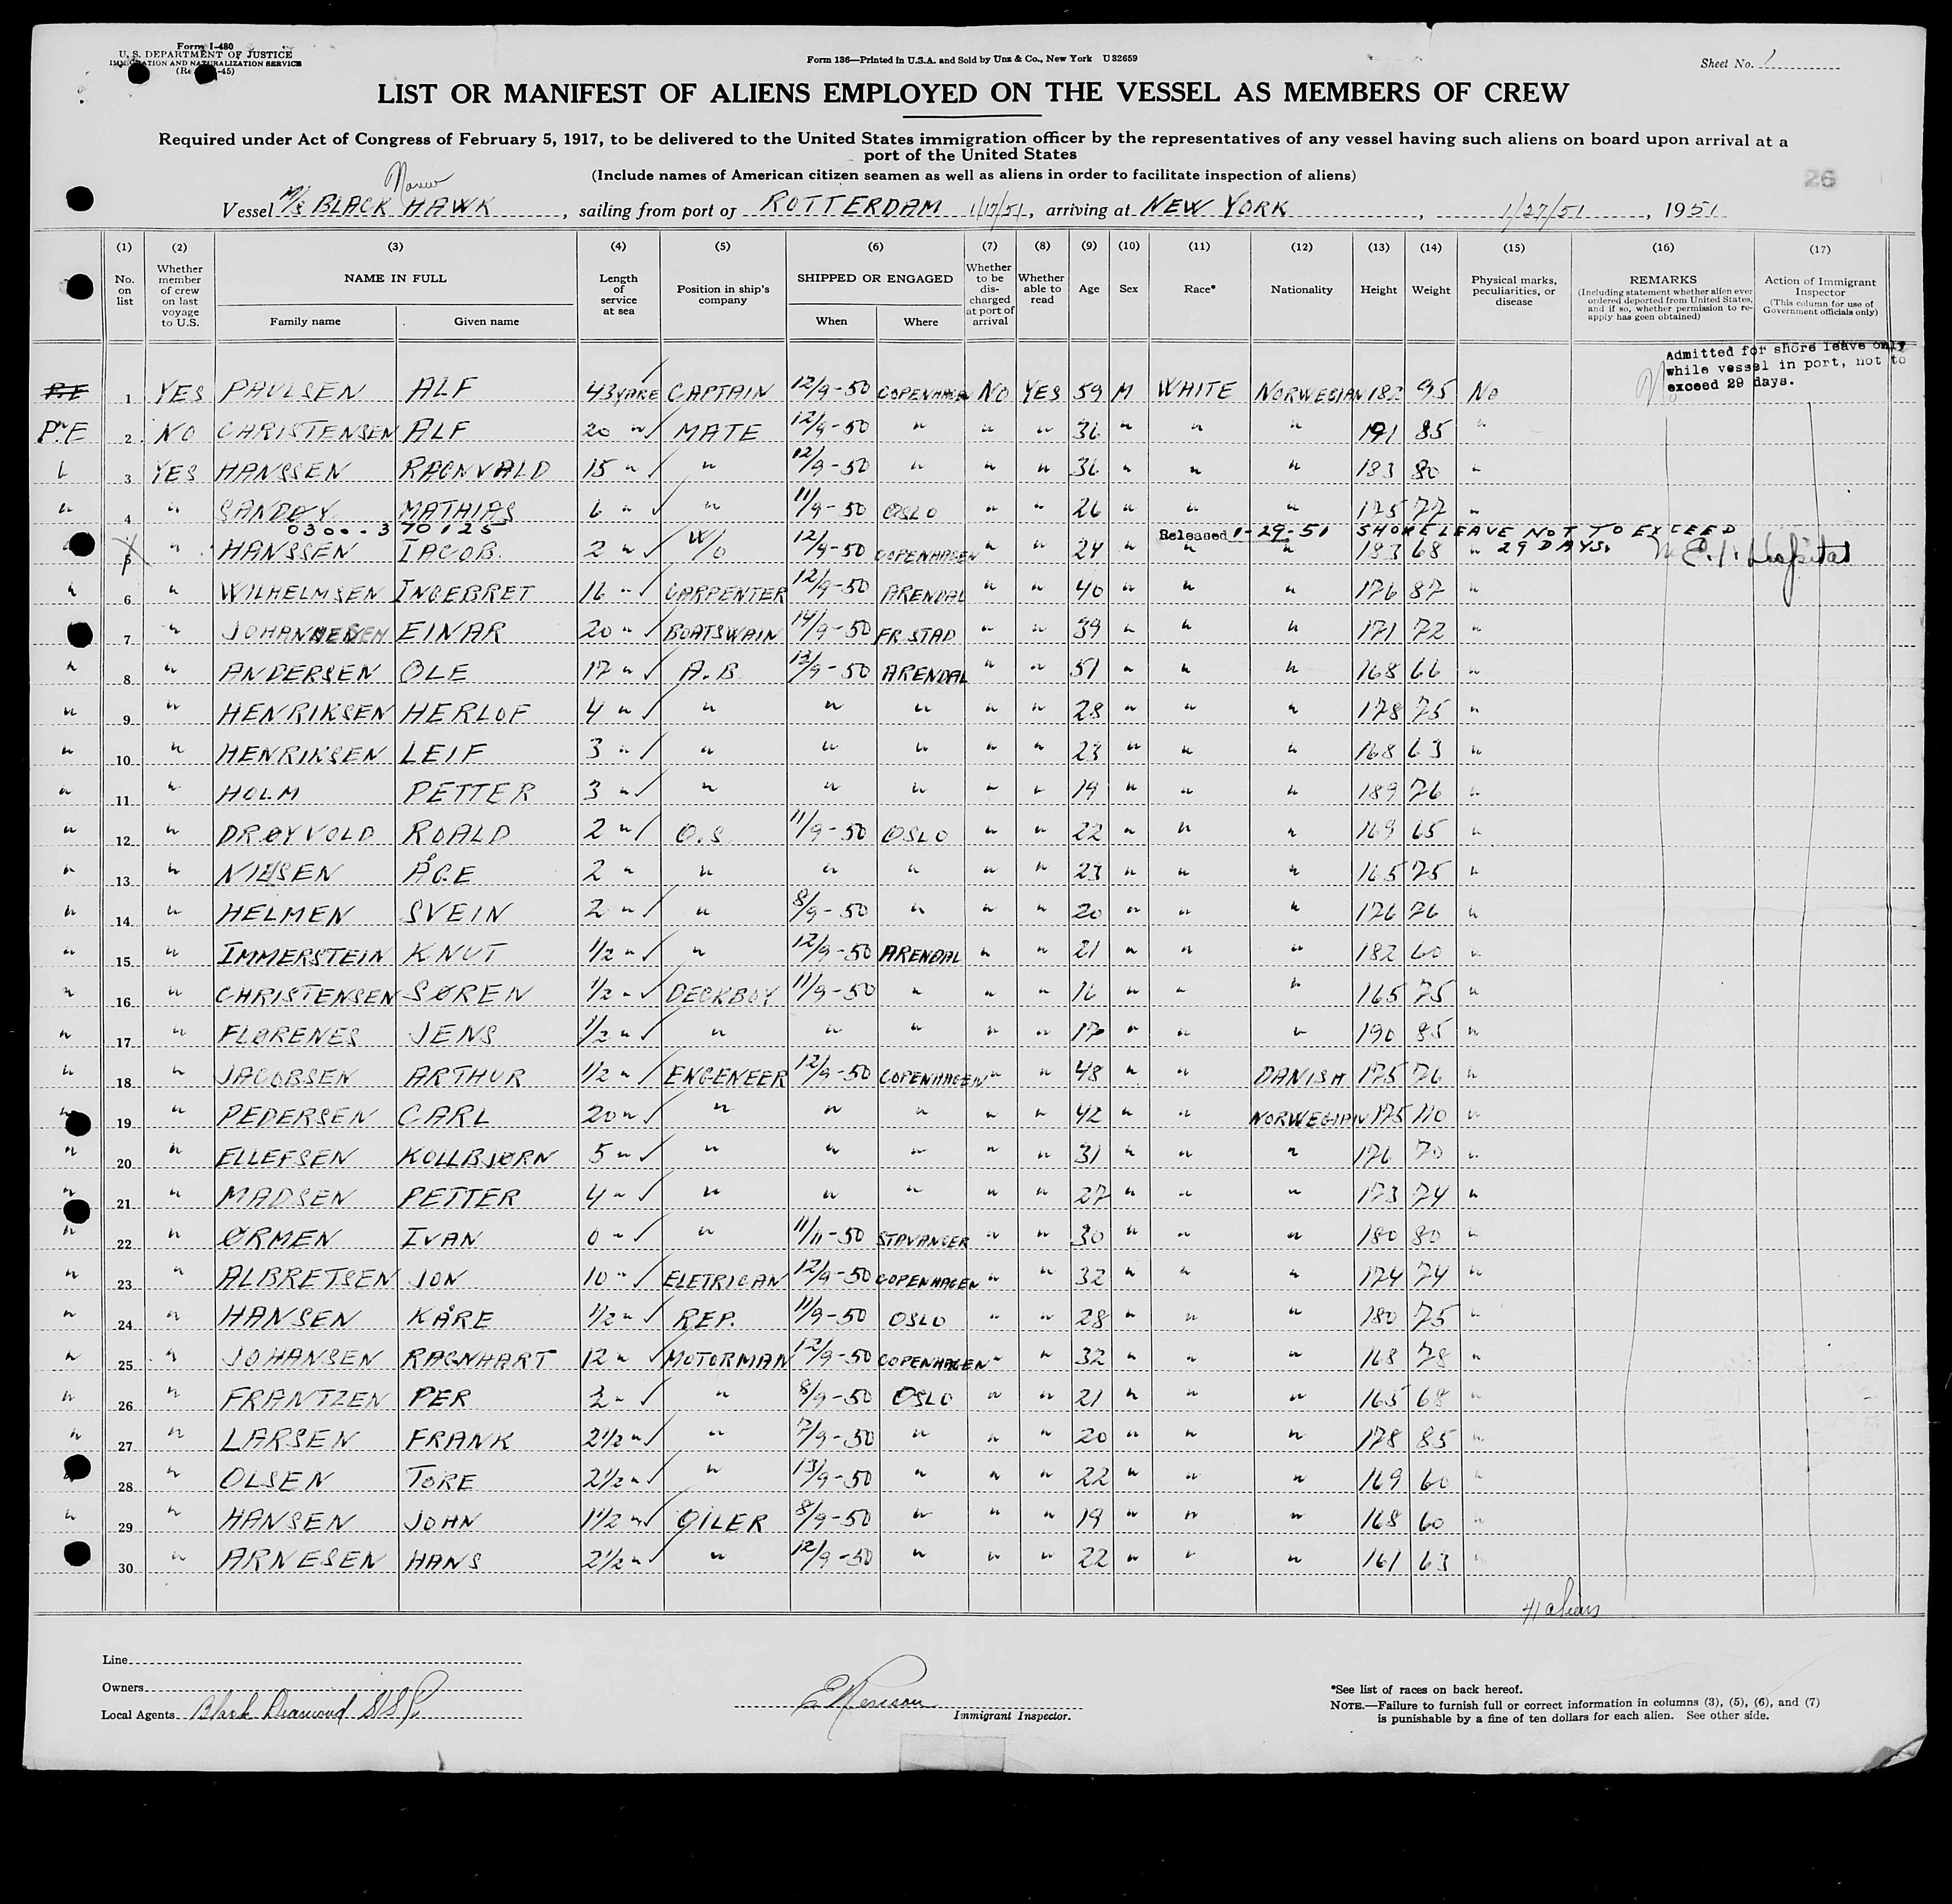 Form I-480
U. S. DEPARTMENT OF JUSTICE
IMMIGRATION AND NATURALIZATION SERVICE
Form 136—Printed in U.S.A. and Sold by Unz & Co., New York U 32659
Sheet No. 1
LIST OR MANIFEST OF ALIENS EMPLOYED ON THE VESSEL AS MEMBERS OF CREW
Required under Act of Congress of February 5, 1917, to be delivered to the United States immigration officer by the representatives of any vessel having such aliens on board upon arrival at a
port of the United States
(Include names of American citizen seamen as well as aliens in order to facilitate inspection of aliens)
26
Vessel M/S BLACK HAWK, sailing from port of ROTTERDAM 1/17/51, arriving at NEW YORK, 1/27/51, 1951
(1) (2) (3) (4) (5) (6) (7) (8) (9) (10) (11) (12) (13) (14) (15) (16) (17)
No. on list
Whether member of crew on last voyage to U.S.
NAME IN FULL
Family name Given name
Length of service at sea
Position in ship's company
SHIPPED OR ENGAGED
When Where
Whether to be discharged at port of arrival
Whether able to read
Age
Sex
Race*
Nationality
Height
Weight
Physical marks, peculiarities, or disease
REMARKS
(Including statement whether alien ever ordered deported from United States, and if so, whether permission to re-apply has geen obtained)
Action of Immigrant Inspector
(This column for use of Government officials only)
Admitted for shore leave only
while vessel in port, not to
exceed 29 days.
1 YES PAULSEN ALF 43 YARE CAPTAIN 12/9-50 COPENHAGEN NO YES 59 M WHITE NORWEGIAN 182 95 NO
2 NO CHRISTENSEN ALF 20 " MATE 12/9-50 " " " 36 " " " 191 85 "
3 YES HANSSEN RAGNVALD 15 " " 12/9-50 " " " 36 " " " 183 80 "
4 " SANDØY MATHIAS 6 " " 11/9-50 OSLO " " 26 " " " 175 77 "
0300-370125
Released 1-29-51 SHORE LEAVE NOT TO EXCEED
29 DAYS.
5 " HANSSEN IACOB. 2 " W/O 12/9-50 COPENHAGEN " " 24 " " " 183 68 " E. I. Hospital
6 " WILHELMSEN INGEBRET 16 " CARPENTER 12/9-50 ARENDAL " " 40 " " " 176 87 "
7 " JOHANNESEN EINAR 20 " BOATSWAIN 14/9-50 FR.STAD " " 39 " " " 171 72 "
8 " ANDERSEN OLE 17 " A.B. 12/9-50 ARENDAL " " 51 " " " 168 66 "
9 " HENRIKSEN HERLOF 4 " " " " " " 28 " " " 178 75 "
10 " HENRIKSEN LEIF 3 " " " " " " 23 " " " 168 63 "
11 " HOLM PETTER 3 " " " " " " 19 " " " 189 76 "
12 " DRØYVOLD ROALD 2 " O.S. 11/9-50 OSLO " " 22 " " " 169 65 "
13 " NILSEN ÅGE 2 " " " " " " 23 " " " 165 75 "
14 " HELMEN SVEIN 2 " " 8/9-50 " " " 20 " " " 176 76 "
15 " IMMERSTEIN KNUT 1/2 " " 12/9-50 ARENDAL " " 21 " " " 182 60 "
16 " CHRISTENSEN SØREN 1/2 " DECKBOY 11/9-50 " " " 16 " " " 165 75 "
17 " FLØRENES JENS 1/2 " " " " " " 17 " " " 190 85 "
18 " JACOBSEN ARTHUR 1/2 " ENGENEER 12/9-50 COPENHAGEN " " 48 " " DANISH 175 76 "
19 " PEDERSEN CARL 20 " " " " " " 42 " " NORWEGIAN 175 110 "
20 " ELLEFSEN KOLLBJØRN 5 " " " " " " 31 " " " 176 70 "
21 " MADSEN PETTER 4 " " " " " " 27 " " " 173 74 "
22 " ØRMEN IVAN 0 " " 11/11-50 STAVANGER " " 30 " " " 180 80 "
23 " ALBRETSEN JON 10 " ELETRICAN 12/9-50 COPENHAGEN " " 32 " " " 174 74 "
24 " HANSEN KÅRE 1/2 " REP. 11/9-50 OSLO " " 28 " " " 180 75 "
25 " JOHANSEN RAGNHART 12 " MOTORMAN 12/9-50 COPENHAGEN " " 32 " " " 168 78 "
26 " FRANTZEN PER 2 " " 8/9-50 OSLO " " 21 " " " 165 68 "
27 " LARSEN FRANK 2 1/2 " " 7/9-50 " " " 20 " " " 178 85 "
28 " OLSEN TORE 2 1/2 " " 13/9-50 " " " 22 " " " 169 60 "
29 " HANSEN JOHN 1 1/2 " OILER 8/9-50 " " " 19 " " " 168 60 "
30 " ARNESEN HANS 2 1/2 " " 12/9-50 " " " 22 " " " 161 63 "
41 aliens
Line
Owners
Local Agents Black Diamond S/S
Immigrant Inspector.
*See list of races on back hereof.
NOTE.—Failure to furnish full or correct information in columns (3), (5), (6), and (7)
is punishable by a fine of ten dollars for each alien. See other side.